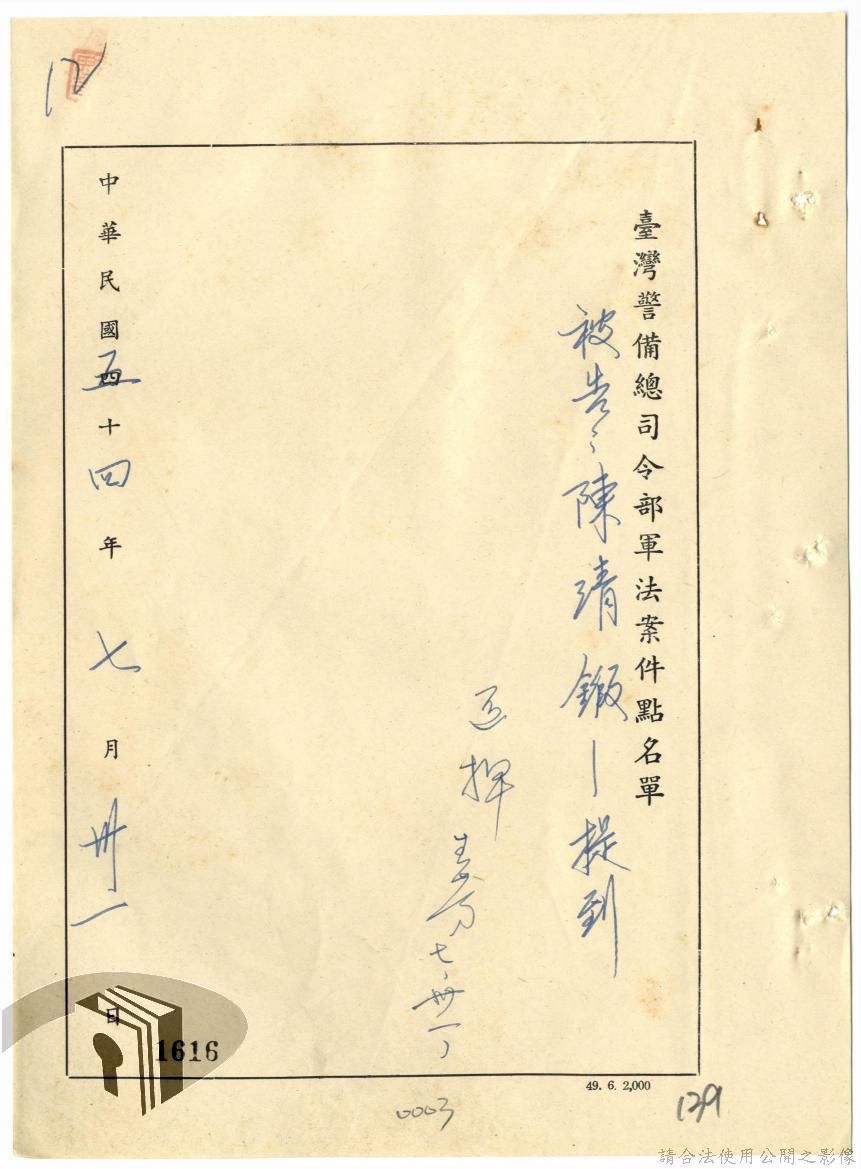 12
臺灣警備總司令部軍法案件點名單
被告:陳靖鍛—提到
七.卅一
中華民國五十四年七月卅一日
1616
49. 6. 2,000
0003
129
請合法使用公開之影像